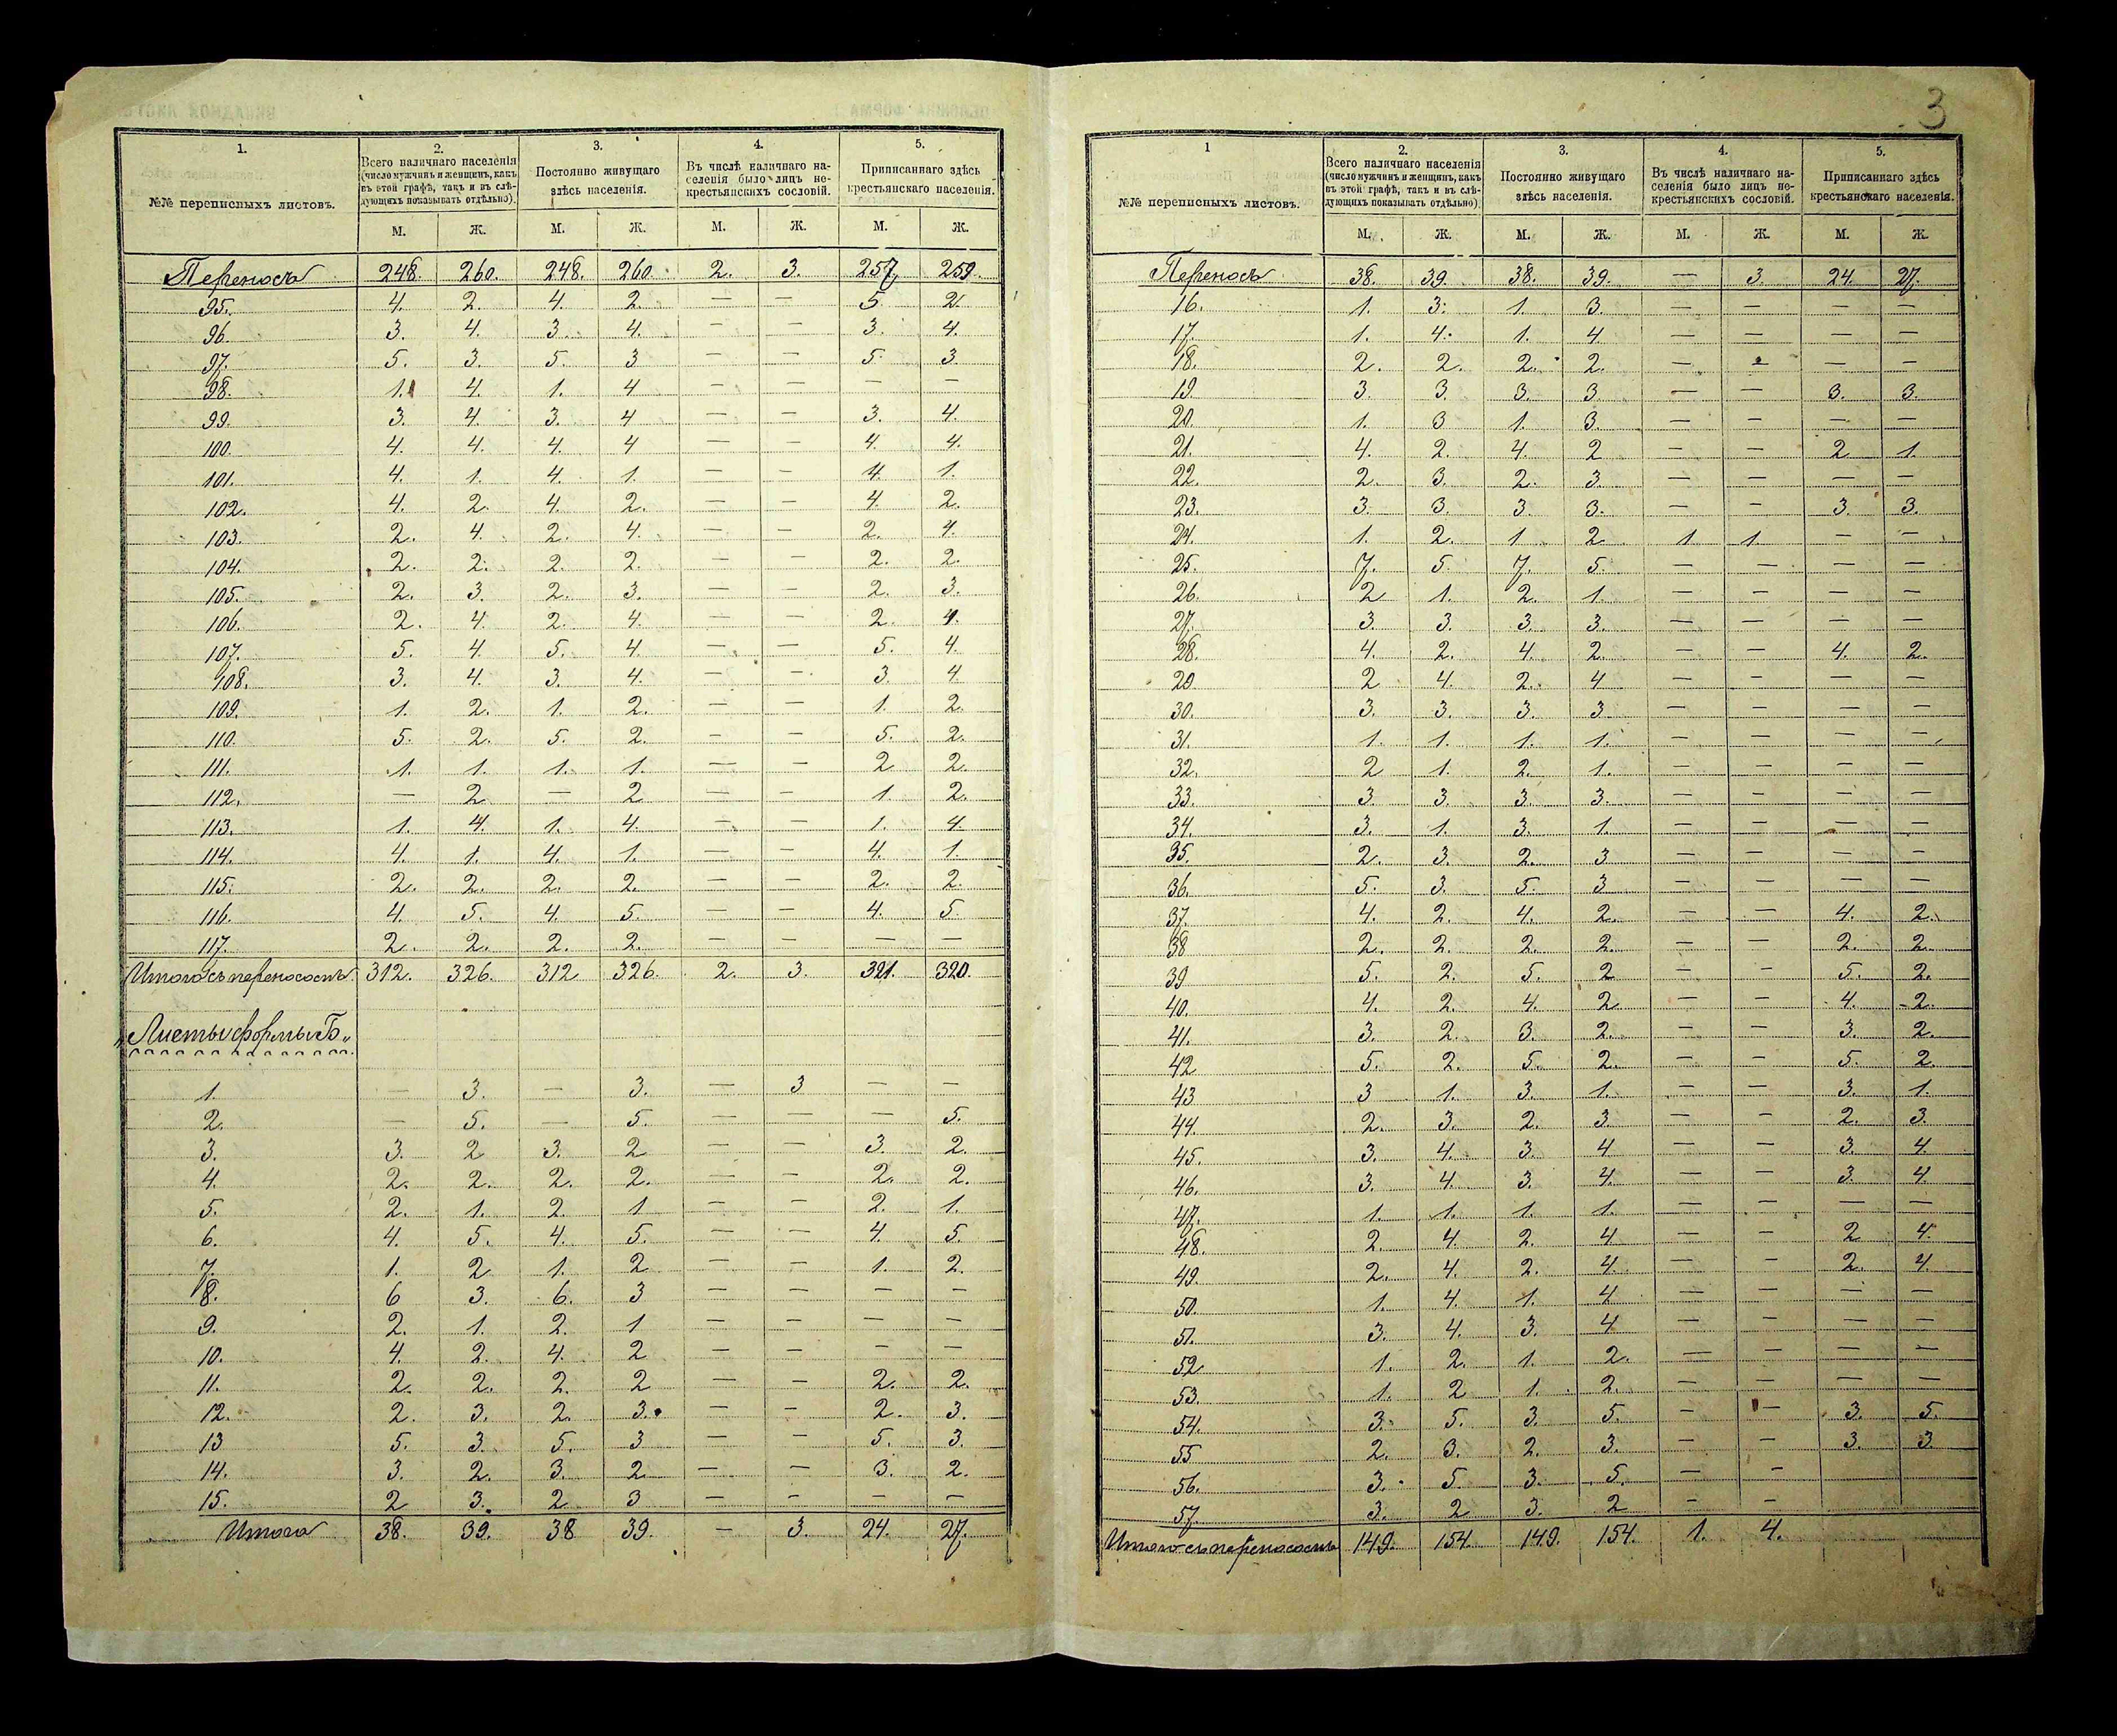 1. 2. 3. 4. 5.
№№ переписныхъ листовъ.
Всего наличнаго населенія
(число мужчинъ и женщинъ, какъ
въ этой графѣ, такъ и въ слѣ-
дующихъ показывать отдѣльно).
Постоянно живущаго
здѣсь населенія.
Въ числѣ наличнаго на-
селенія было лицъ не-
крестьянскихъ сословій.
Приписаннаго здѣсь
крестьянскаго населенія.
М. Ж. М. Ж. М. Ж. М. Ж.
Переносъ 248. 260. 248. 260. 2. 3. 257. 259.
95. 4. 2. 4. 2. — — 5. 2.
96. 3. 4. 3. 4. — — 3. 4.
97. 5. 3. 5. 3 — — 5. 3.
98. 1. 4. 1. 4 — — — —
99. 3. 4. 3. 4 — — 3. 4.
100. 4. 4. 4. 4 — — 4. 4.
101. 4. 1. 4. 1. — — 4. 1.
102. 4. 2. 4. 2. — — 4. 2.
103. 2. 4. 2. 4. — — 2. 4.
104. 2. 2. 2. 2. — — 2. 2.
105. 2. 3. 2. 3. — — 2. 3.
106. 2. 4. 2. 4. — — 2. 4.
107. 5. 4. 5. 4. — — 5. 4.
108. 3. 4. 3. 4. — — 3. 4
109. 1. 2. 1. 2. — — 1. 2.
110. 5. 2. 5. 2. — — 5. 2.
111. 1. 1. 1. 1. — — 2 2.
112. — 2 — 2 — — 1. 2.
113. 1. 4. 1. 4. — — 1. 4.
114. 4. 1. 4. 1. — — 4. 1.
115. 2. 2. 2. 2. — — 2. 2.
116. 4. 5. 4. 5. — — 4. 5.
117. 2. 2. 2. 2. — — — —
Итого съ переносомъ 312. 326. 312 326. 2. 3. 321. 320.
„Листы формы Б„
1. — 3. — 3. — 3 — —
2. — 5. — 5. — — — 5.
3. 3. 2 3. 2 — — 3. 2.
4. 2. 2. 2. 2. — — 2. 2.
5. 2. 1. 2. 1 — — 2. 1.
6. 4. 5. 4. 5. — — 4. 5.
7. 1. 2 1. 2 — — 1. 2.
8. 6 3. 6. 3 — — — —
9. 2. 1. 2. 1 — — — —
10. 4. 2. 4. 2 — — — —
11. 2. 2. 2. 2 — — 2. 2.
12. 2. 3. 2. 3. — — 2. 3.
13 5. 3. 5. 3 — — 5. 3.
14. 3. 2. 3. 2 — — 3. 2.
15. 2 3. 2 3 — — — —
Итого 38. 39. 38 39. — 3. 24. 27.
3
1 2. 3. 4. 5.
№№ переписныхъ листовъ.
Всего наличнаго населенія
(число мужчинъ и женщинъ, какъ
въ этой графѣ, такъ и въ слѣ-
дующихъ показывать отдѣльно).
Постоянно живущаго
здѣсь населенія.
Въ числѣ наличнаго на-
селенія было лицъ не-
крестьянскихъ сословій.
Приписаннаго здѣсь
крестьянскаго населенія.
М. Ж. М. Ж. М. Ж. М. Ж.
Переносъ 38. 39. 38. 39. — 3. 24. 27.
16. 1. 3. 1. 3. — — — —
17. 1. 4. 1. 4 — — — —
18. 2. 2. 2. 2. — — — —
19. 3. 3. 3. 3 — — 3. 3.
20. 1. 3 1. 3. — — — —
21. 4. 2. 4. 2 — — 2 1.
22. 2. 3. 2. 3 — — — —
23. 3. 3. 3. 3. — — 3. 3.
24. 1. 2. 1 2 1. 1. — —
25. 7. 5. 7. 5. — — — —
26. 2 1. 2. 1. — — — —
27. 3. 3. 3. 3. — — — —
28. 4. 2. 4. 2. — — 4. 2.
20 2 4. 2. 4 — — — —
30. 3. 3. 3. 3 — — — —
31. 1. 1. 1. 1. — — — —
32. 2 1. 2. 1. — — — —
33. 3. 3. 3. 3. — — — —
34. 3. 1. 3. 1. — — — —
35. 2. 3. 2. 3 — — — —
36. 5. 3. 5. 3 — — — —
37. 4. 2. 4. 2. — — 4. 2.
38 2. 2. 2. 2. — — 2. 2.
39 5. 2. 5. 2 — — 5. 2.
40. 4. 2. 4. 2 — — 4. 2.
41. 3. 2. 3. 2. — — 3. 2.
42 5. 2. 5. 2. — — 5. 2.
43 3 1. 3. 1. — — 3. 1.
44. 2. 3. 2. 3. — — 2. 3.
45. 3. 4. 3. 4 — — 3. 4.
46. 3. 4. 3. 4. — — 3. 4
47. 1. 1. 1. 1. — — — —
48. 2. 4. 2. 4 — — 2 4.
49. 2. 4. 2. 4. — — 2. 4.
50. 1. 4. 1. 4 — — — —
51. 3. 4. 3. 4 — — — —
52 1. 2. 1. 2. — — — —
53. 1. 2 1. 2. — — — —
54. 3. 5. 3. 5. — — 3. 5.
55 2. 3. 2. 3. — — 3. 3
56. 3. 5. 3. 5. — —
57. 3. 2 3. 2 — —
Итого съ переносомъ 149. 154. 149. 154. 1. 4.